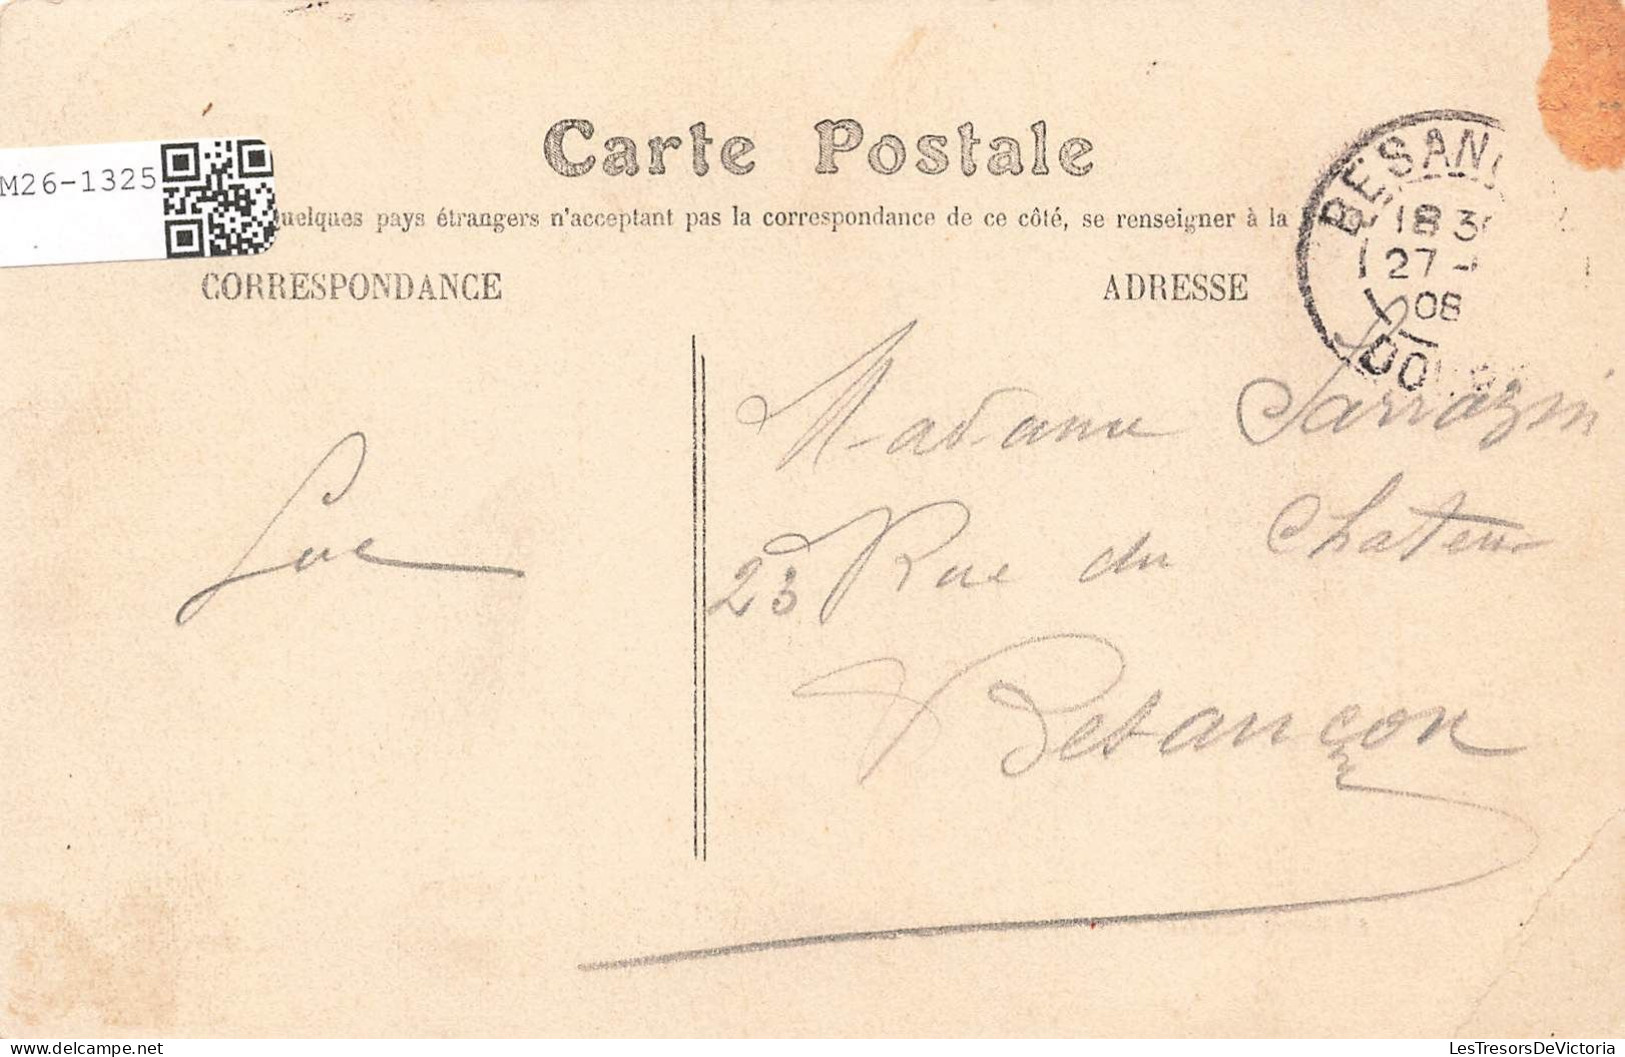 Carte Postale
M26-1325
uelques pays étrangers n'acceptant pas la correspondance de ce côté, se renseigner à la
CORRESPONDANCE
ADRESSE
BESAN
18 3
27 -
08
DOUBS
Madame Sarrazin
23 Rue du Chateau
Besançon
Luc
LesTresorsDeVictoria